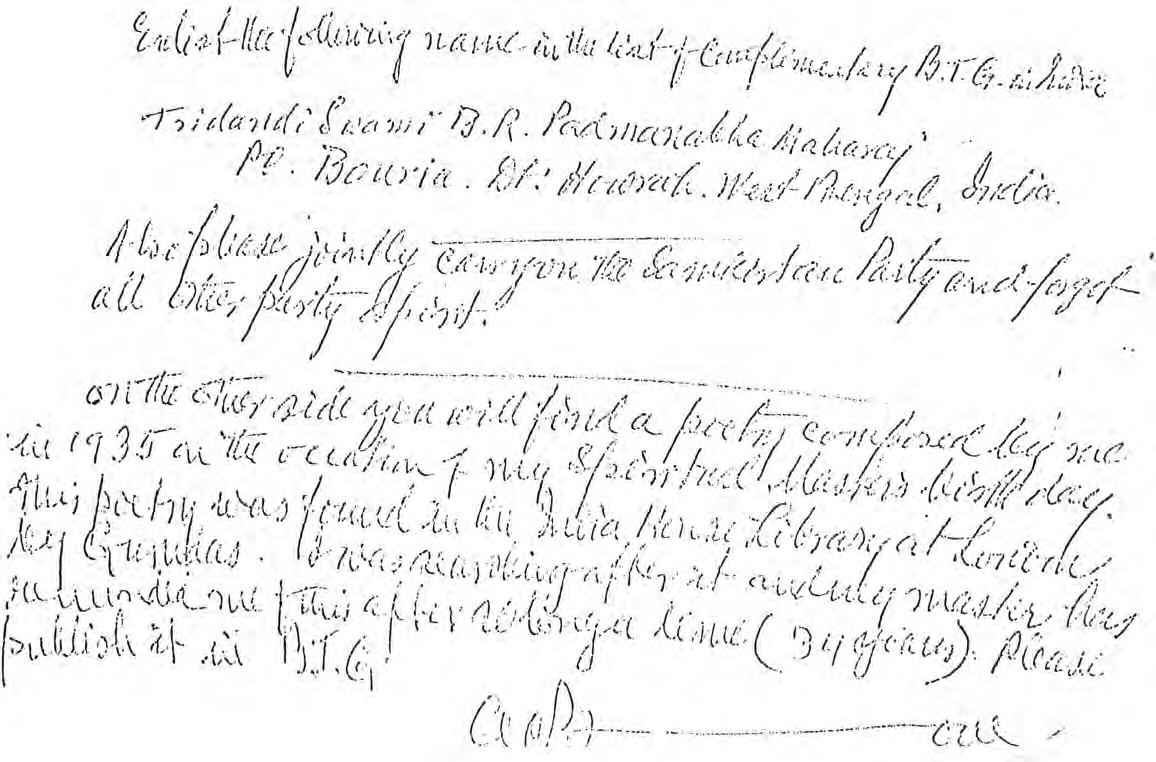 Enlist the following name in the list of Complimentary B.T.G. in India
Tridandi Swami B.R. Padmanabha Maharaj
P.O. Bouria. Dt: Howrah. West Bengal, India.
Also please jointly carry on the Samkirtan Party and forget
all other party spirit.
on the other side you will find a poetry composed by me
in 1935 on the occation of my Spiritual Masters birth day.
This poetry was found in the India House Library at London,
by Gurudas. I was searching after it and my master has
reminded me of this after so long a time (34 years). Please
publish it in B.T.G